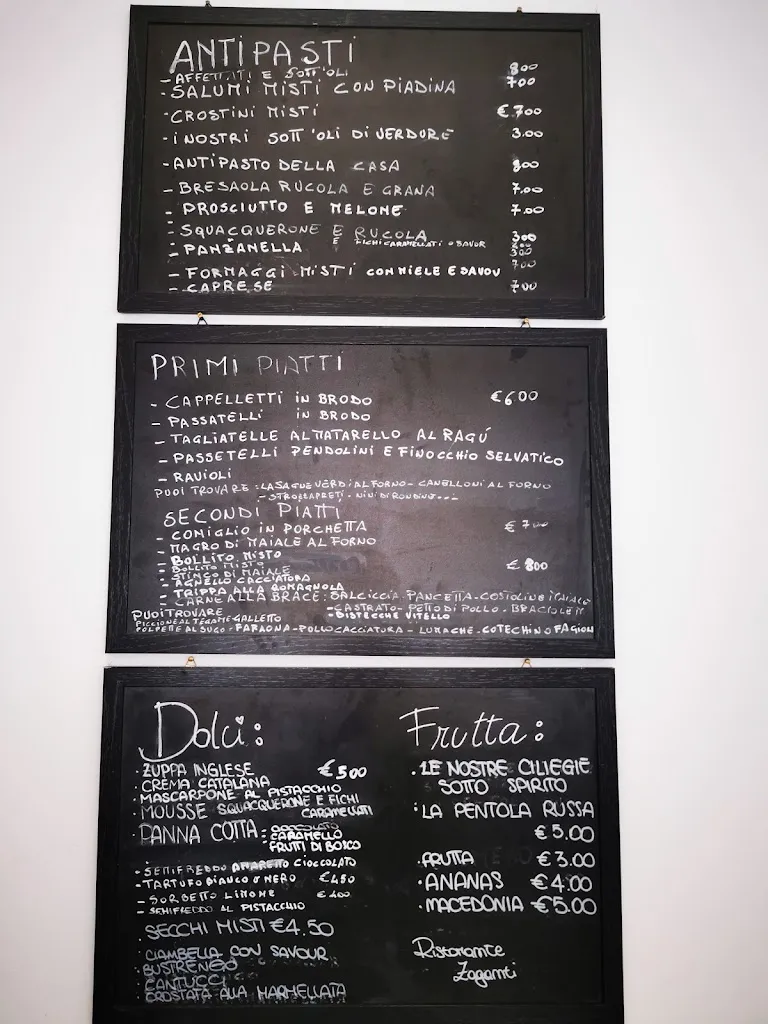 ANTIPASTI
- AFFETTATI E SOTT'OLI 800
- SALUMI MISTI CON PIADINA 700
- CROSTINI MISTI € 700
- I NOSTRI SOTT'OLI DI VERDURE 3.00
- ANTIPASTO DELLA CASA 800
- BRESAOLA RUCOLA E GRANA 7.00
- PROSCIUTTO E MELONE 7.00
- SQUACQUERONE E RUCOLA 300
E FICHI CARAMELLATI O SAVOR
- PANZANELLA 300
- FORMAGGI MISTI CON MIELE E SAVOU 700
- CAPRESE 700
PRIMI PIATTI
- CAPPELLETTI IN BRODO € 600
- PASSATELLI IN BRODO
- TAGLIATELLE AL MATARELLO AL RAGÚ
- PASSETELLI PENDOLINI E FINOCCHIO SELVATICO
- RAVIOLI
PUOI TROVARE: LASAGUE VERDI AL FORNO - CANELLONI AL FORNO
- STROZZAPRETI - NINI DI RONDINE - - -
SECONDI PIATTI
- CONIGLIO IN PORCHETTA € 700
- MAGRO DI MAIALE AL FORNO
- BOLLITO MISTO
BOLLITO MISTO € 800
- STINCO DI MAIALE
- AGNELLO CACCIATORA
- TRIPPA ALLA ROMAGNOLA
- CARNE ALLA BRACE: SALCICCIA - PANCETTA - COSTOLINE MAIALE
- CASTRATO - PETTO DI POLLO - BRACIOLE M
PUOI TROVARE - BISTECCHE VITELLO
PICCIONE AL TEGAME GALLETTO
POLPETTE AL SUGO - FARAONA - POLLO CACCIATORA - LUMACHE - COTECHINO FAGIOLI
Dolci:
· ZUPPA INGLESE € 500
· CREMA CATALANA
· MASCARPONE AL PISTACCHIO
· MOUSSE SQUACQUERONE E FICHI
CARAMELLATI
PANNA COTTA: CIOCCOLATO
CARAMELLO
FRUTTI DI BOSCO
- SEMIFREDDO AMARETTO CIOCCOLATO
- TARTUFO BIANCO O NERO € 450
- SORBETTO LIMONE €
- SEMIFREDDO AL PISTACCHIO
· SECCHI MISTI € 4.50
· CIAMBELLA CON SAVOUR
· BUSTRENGO
· CANTUCCI
· CROSTATA ALLA MARMELLATA
Frutta:
· LE NOSTRE CILIEGIE
SOTTO SPIRITO
· LA PENTOLA RUSSA
€ 5.00
· FRUTTA € 3.00
· ANANAS € 4.00
· MACEDONIA € 5.00
Ristorante
Zaganti